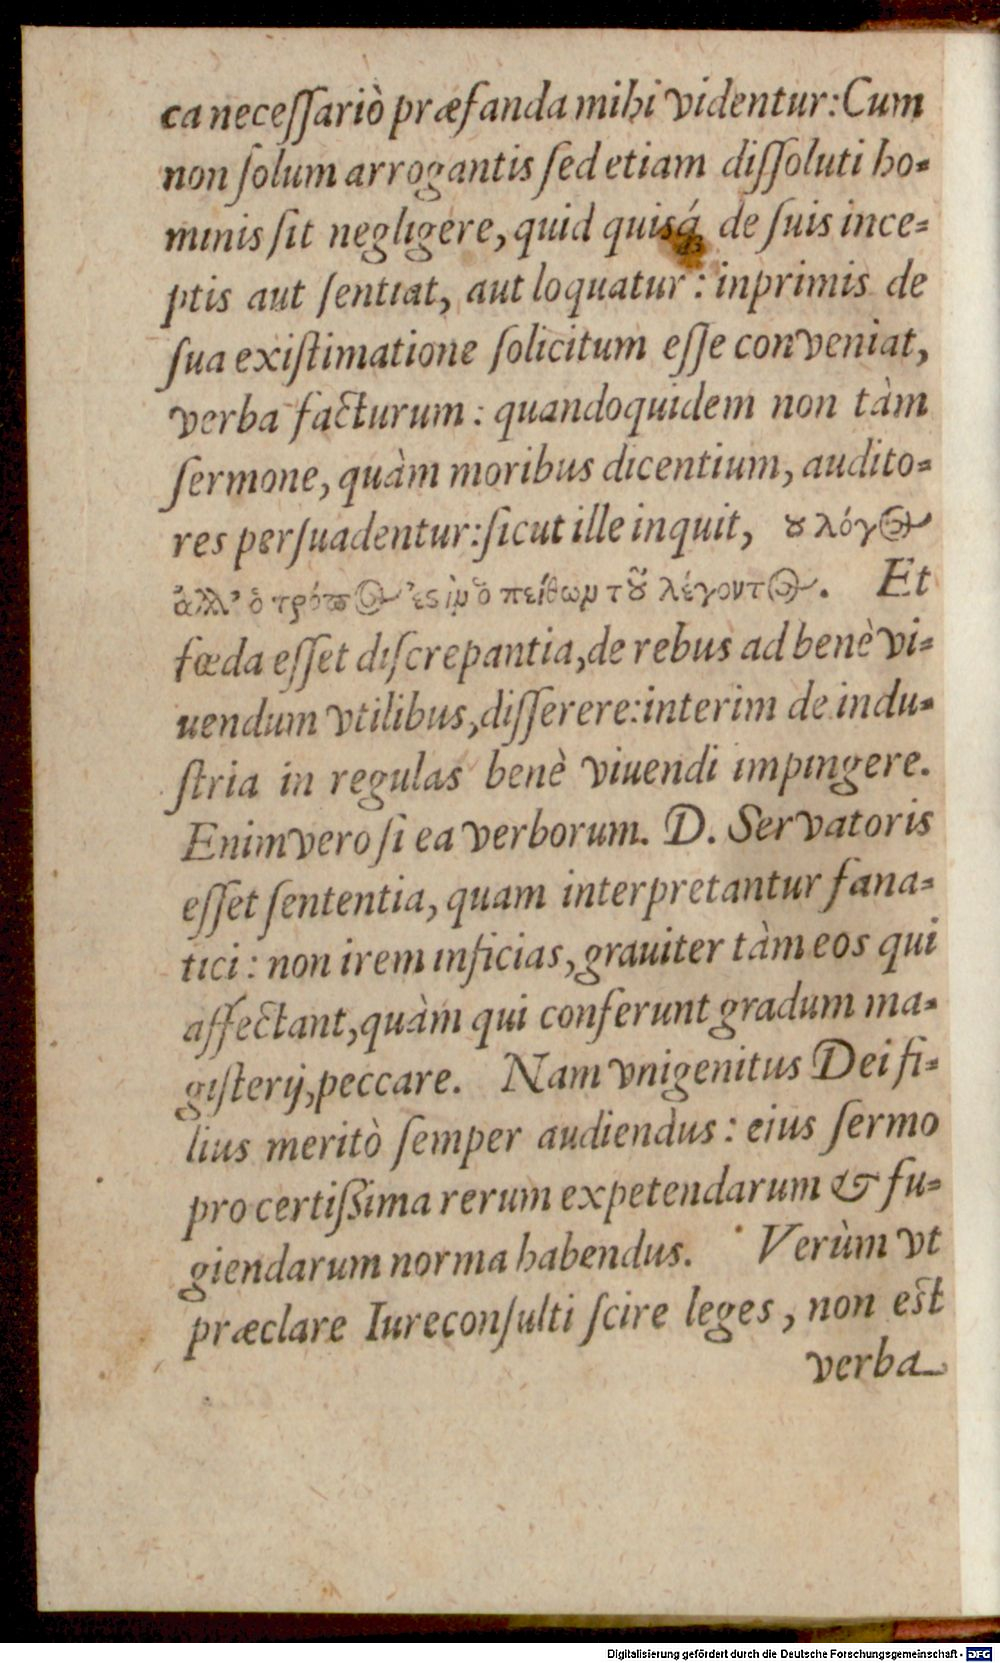 ca neceſſariò præfanda mihi videntur: Cum
non ſolum arrogantis ſed etiam diſſoluti ho-
minis ſit negligere, quid quisq́; de ſuis ince-
ptis aut ſentiat, aut loquatur: inprimis de
ſua exiſtimatione ſolicitum eſſe conveniat,
verba facturum: quandoquidem non tàm
ſermone, quàm moribus dicentium, audito-
res perſuadentur: ſicut ille inquit, ȣ λόγος
ἀλλ' ὁ τρόπος ἐςὶμ ὁ πείθωμ τȣ͂ λέγοντος. Et
fœda eſſet diſcrepantia, de rebus ad benè vi-
uendum vtilibus, diſſerere: interim de indu-
ſtria in regulas benè viuendi impingere.
Enimvero ſi ea verborum. D. Servatoris
eſſet ſententia, quam interpretantur fana-
tici: non irem inficias, grauiter tàm eos qui
affectant, quàm qui conferunt gradum ma-
giſterij, peccare. Nam vnigenitus Dei fi-
lius meritò ſemper audiendus: eius ſermo
pro certißima rerum expetendarum & fu-
giendarum norma habendus. Verùm vt
præclare Iureconſulti ſcire leges, non eſt
verba
Digitalisierung gefördert durch die Deutsche Forschungsgemeinschaft - DFG